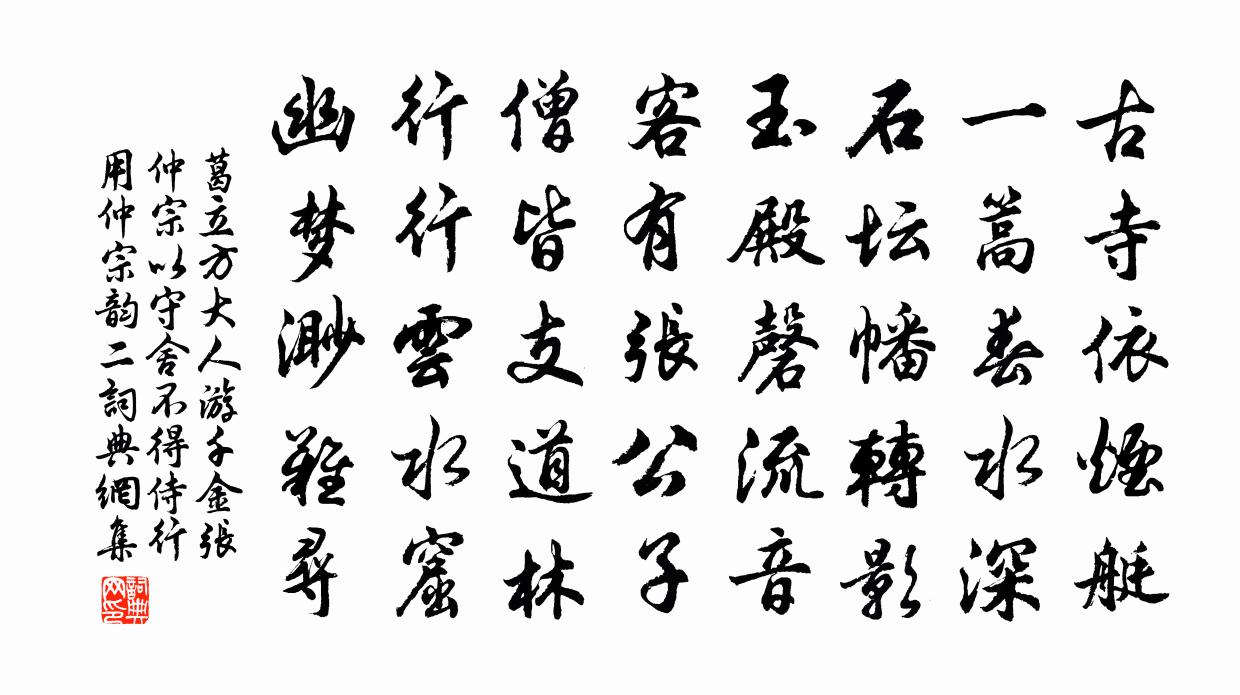 古寺依煙艇
一蒿春水深
石坛幡轉影
玉殿磬流音
客有張公子
僧皆支道林
行行雲水窟
幽梦渺難尋
葛立方大人游千金張
仲宗以守舍不得侍行
用仲宗韵二詞典網集
詞典
网印